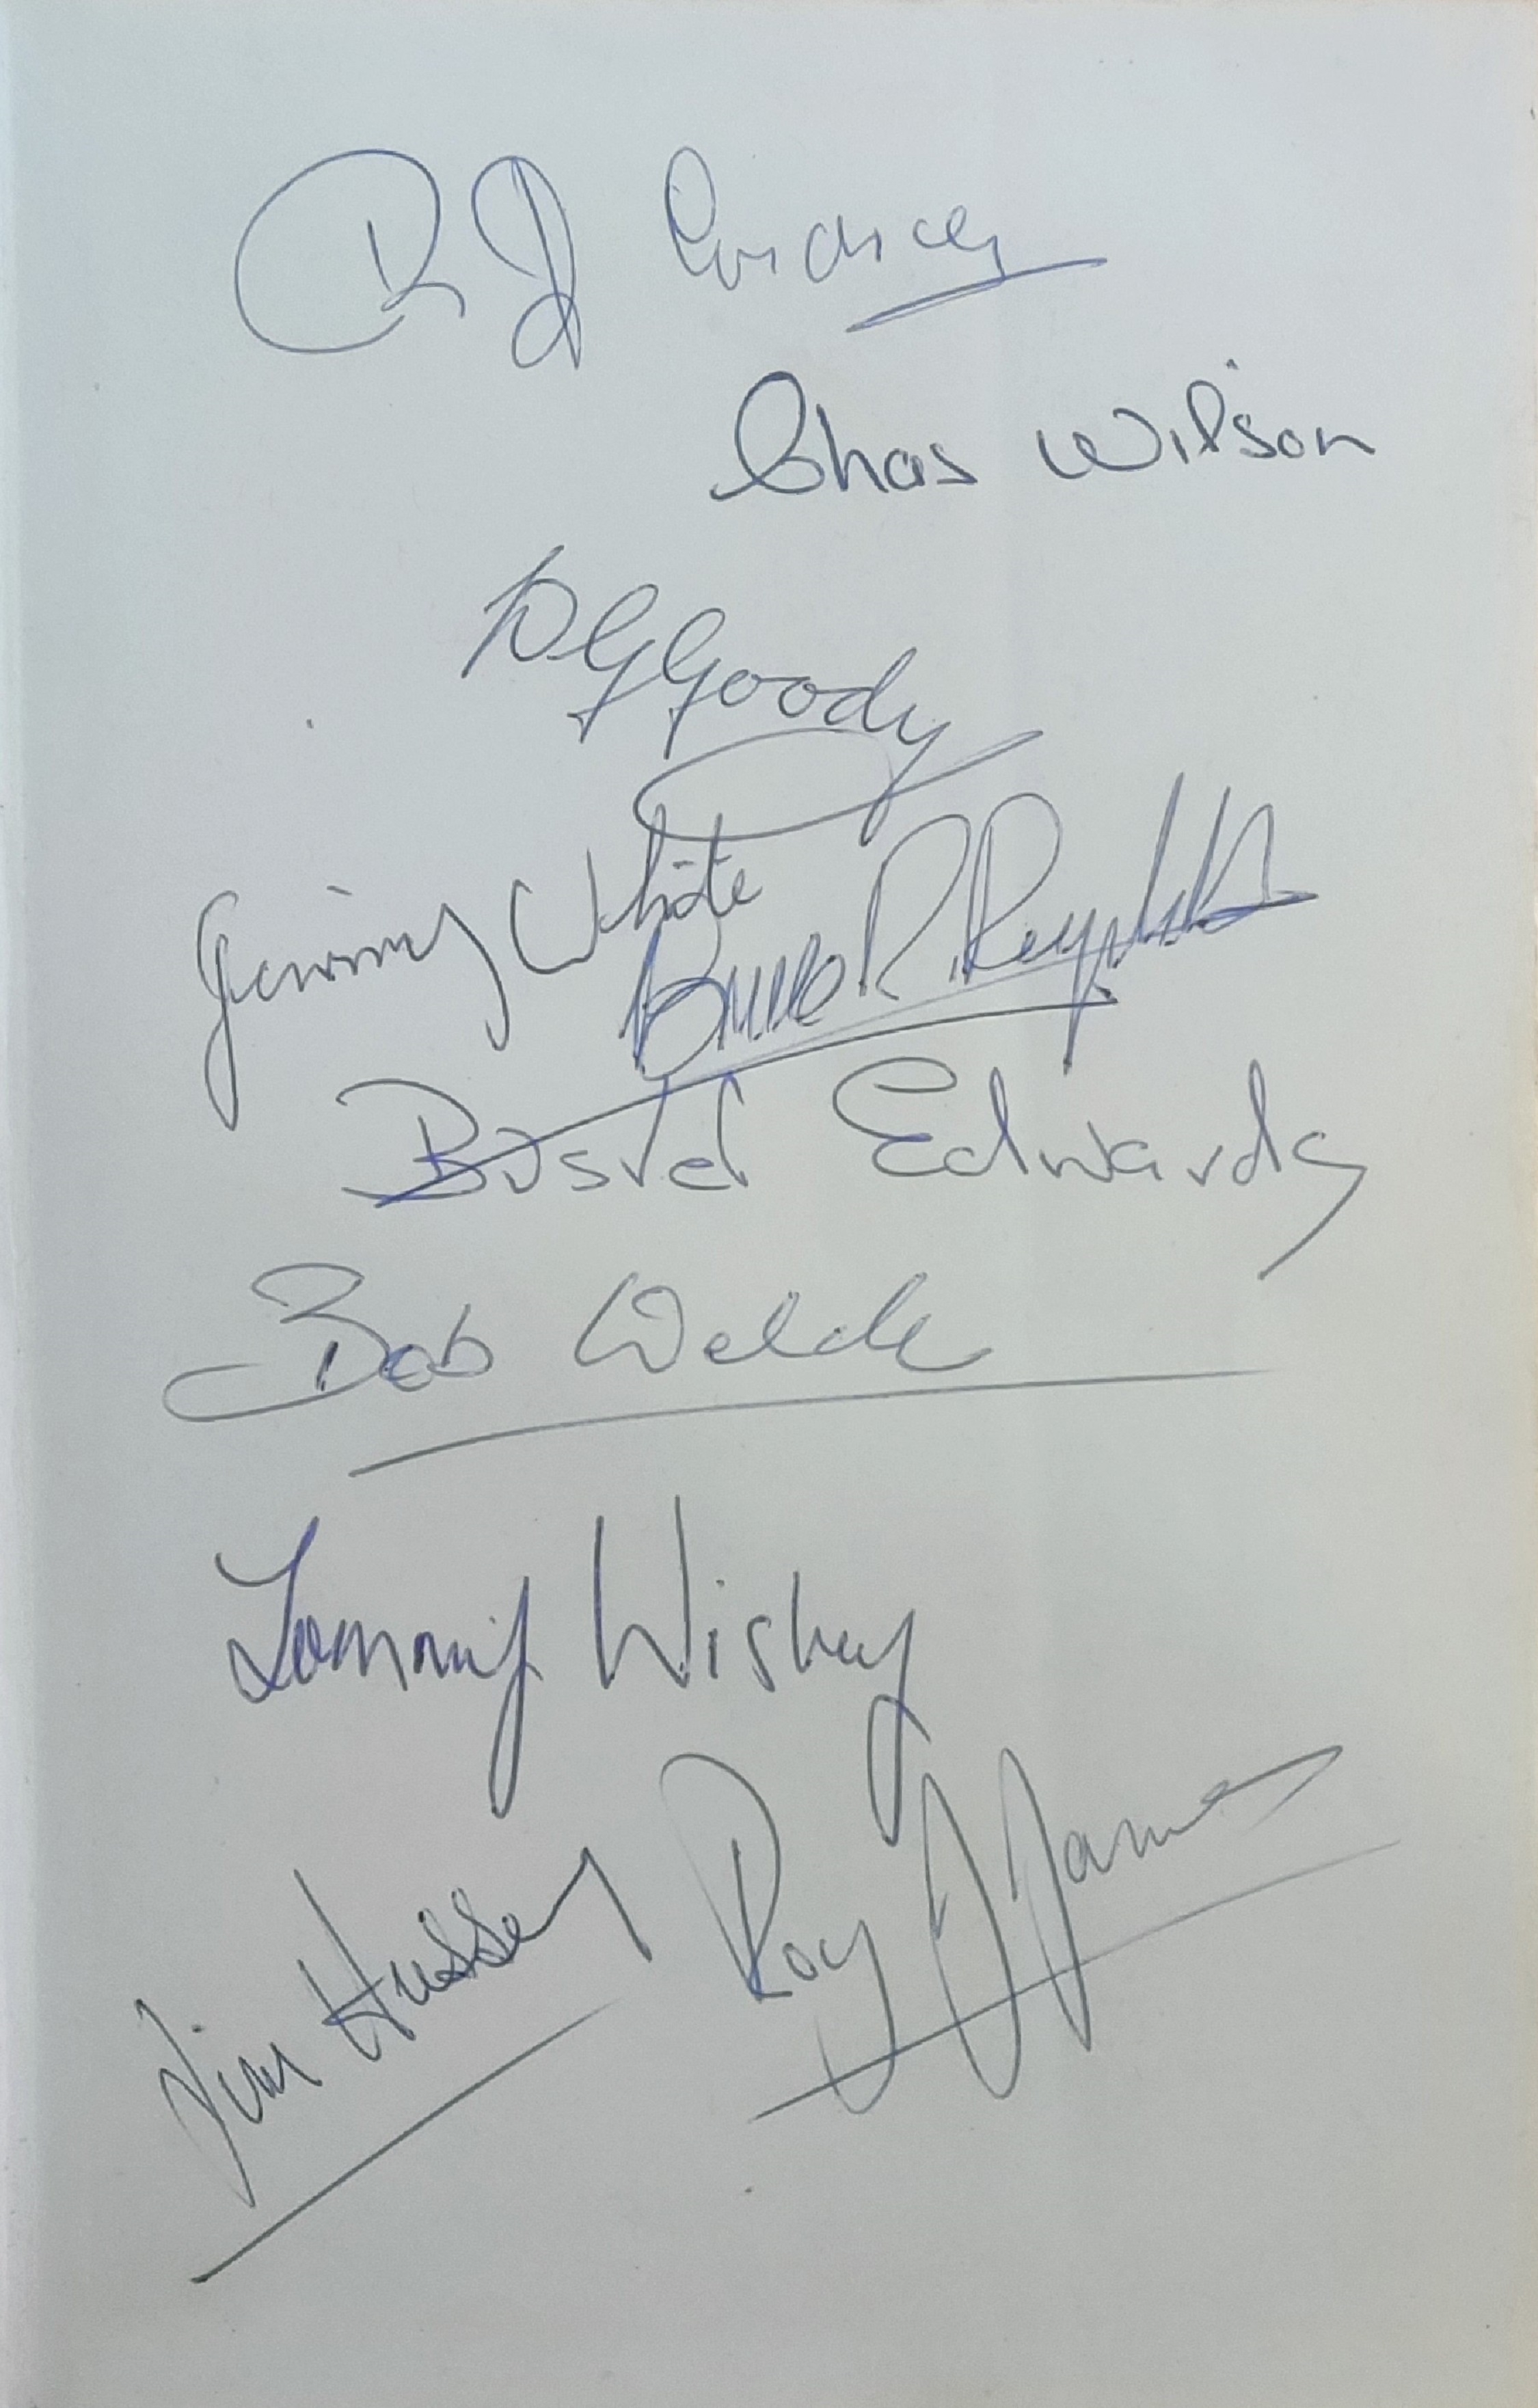 R J Cordrey
Chas Wilson
D G Goody
Jimmy White
Bruce R. Reynolds
Buster Edwards
Bob Welch
Tommy Wisbey
Jim Hussey
Roy J James